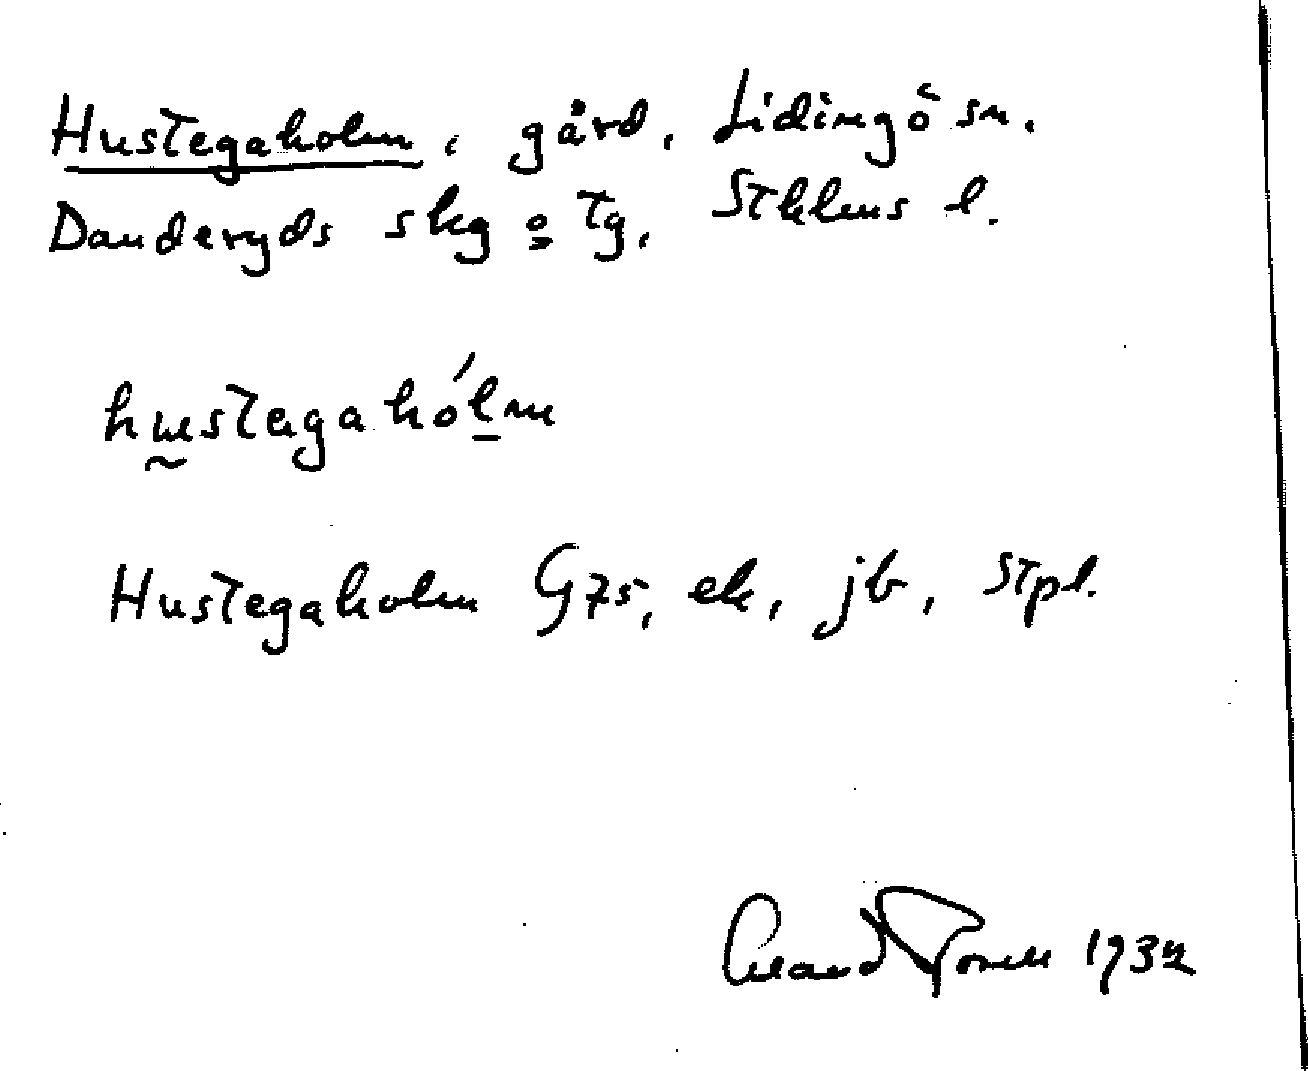 Hustegaholm, gård, Lidingö sn.
Danderyds skg o Tg, Sthlms l.
hustegahólm
Hustegaholm G75, ek, jb, stpl.
1932